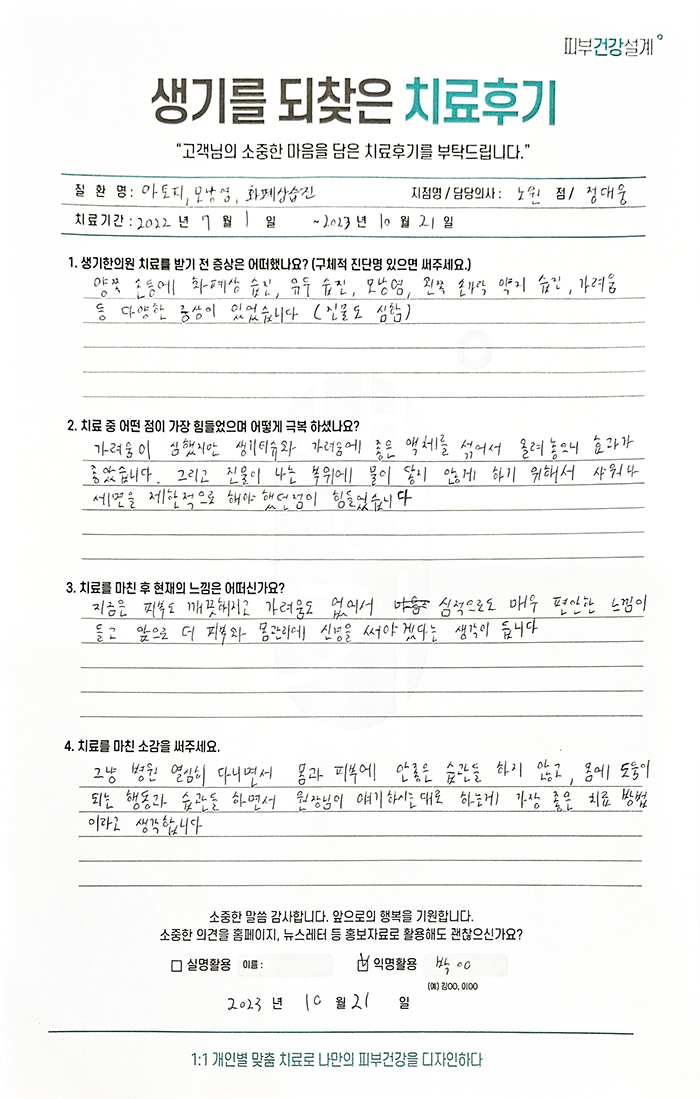 피부건강설계
생기를 되찾은 치료후기
“고객님의 소중한 마음을 담은 치료후기를 부탁드립니다.”
질 환 명 : 아토피, 모낭염, 화폐상습진 지점명 / 담당의사 : 노원 점 / 정대웅
치료기간 : 2022 년 7 월 1 일 ~2023 년 10 월 21 일
1. 생기한의원 치료를 받기 전 증상은 어떠했나요? (구체적 진단명 있으면 써주세요.)
양쪽 손등에 화폐상 습진, 유두 습진, 모낭염, 왼쪽 손가락 약지 습진, 가려움
등 다양한 증상이 있었습니다 (진물도 심함)
2. 치료 중 어떤 점이 가장 힘들었으며 어떻게 극복 하셨나요?
가려움이 심했지만 생기티슈와 가려움에 좋은 액체를 섞어서 올려놓으니 효과가
좋았습니다. 그리고 진물이 나는 부위에 물이 닿지 않게 하기 위해서 샤워나
세면을 제한적으로 해야 했던점이 힘들었습니다
3. 치료를 마친 후 현재의 느낌은 어떠신가요?
지금은 피부도 깨끗해지고 가려움도 없어서 심적으로도 매우 편안한 느낌이
들고 앞으로 더 피부와 몸관리에 신경을 써야겠다는 생각이 듭니다
4. 치료를 마친 소감을 써주세요.
그냥 병원 열심히 다니면서 몸과 피부에 안좋은 습관들 하지 않고, 몸에 도움이
되는 행동과 습관들 하면서 원장님이 얘기하시는대로 하는게 가장 좋은 치료 방법
이라고 생각합니다
소중한 말씀 감사합니다. 앞으로의 행복을 기원합니다.
소중한 의견을 홈페이지, 뉴스레터 등 홍보자료로 활용해도 괜찮으신가요?
실명활용 이름 : 익명활용 박oo
(예) 김OO, 이OO
2023 년 10 월 21 일
1:1 개인별 맞춤 치료로 나만의 피부건강을 디자인하다